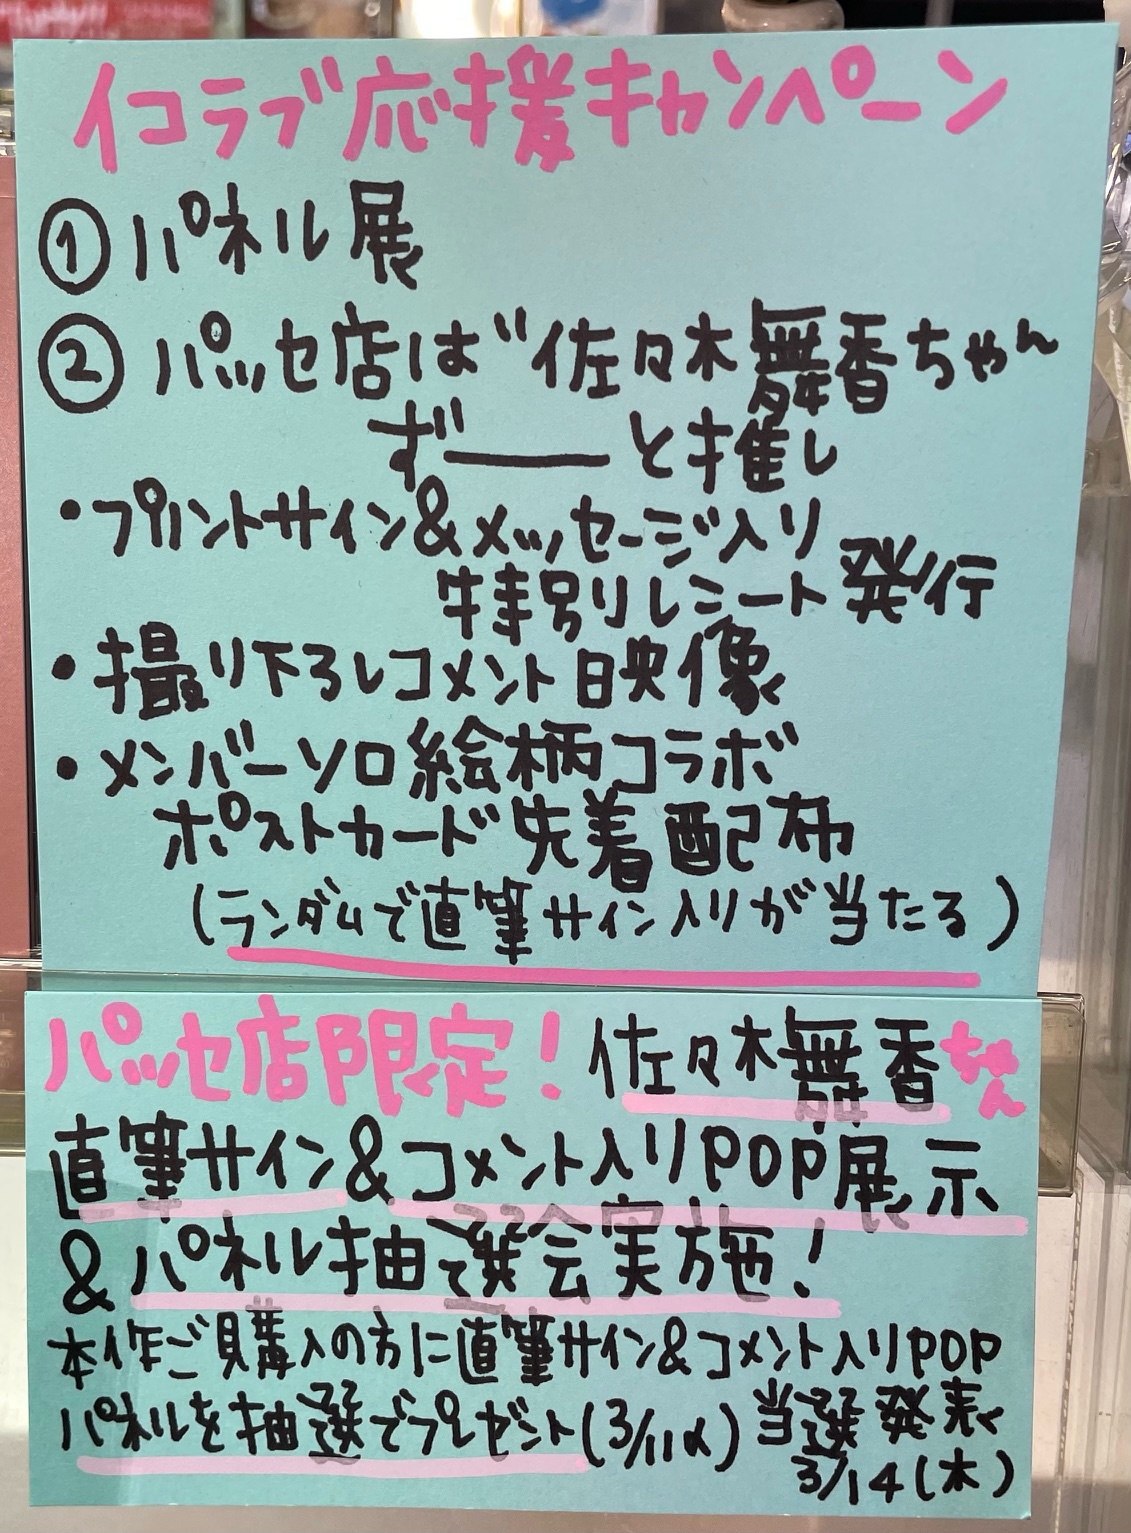 イコラブ応援キャンペーン
① パネル展
② パッセ店は〝佐々木舞香ちゃん
ず——と推し
・プリントサイン&メッセージ入り
特別レシート発行
・撮り下ろしコメント映像
・メンバーソロ絵柄コラボ
ポストカード先着配布
(ランダムで直筆サイン入りが当たる)
パッセ店限定! 佐々木舞香ちゃん
直筆サイン&コメント入りPOP展示
&パネル抽選会実施!
本作ご購入の方に直筆サイン&コメント入りPOP
パネルを抽選でプレゼント(3/11〆) 当選発表
3/14(木)